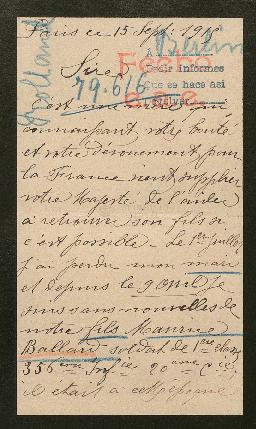 Paris ce 15 Sept. 19
Berlin
Hollande
Fecho
A
Pedir informes
que se hace así
79.616
Sire
c'est une mère qui
connaissant votre bonté
et votre dévouement pour
la France vient supplier
votre Majesté de l'aider
à retrouver son fils si
c'est possible. Le 1er juillet
j'ai perdu mon mari
et depuis le 9 avril je
suis sans nouvelles de
notre fils Maurice
Ballard soldat de 1ère classe
356ème Inf.ie 20ème Cie
il était à cette époque